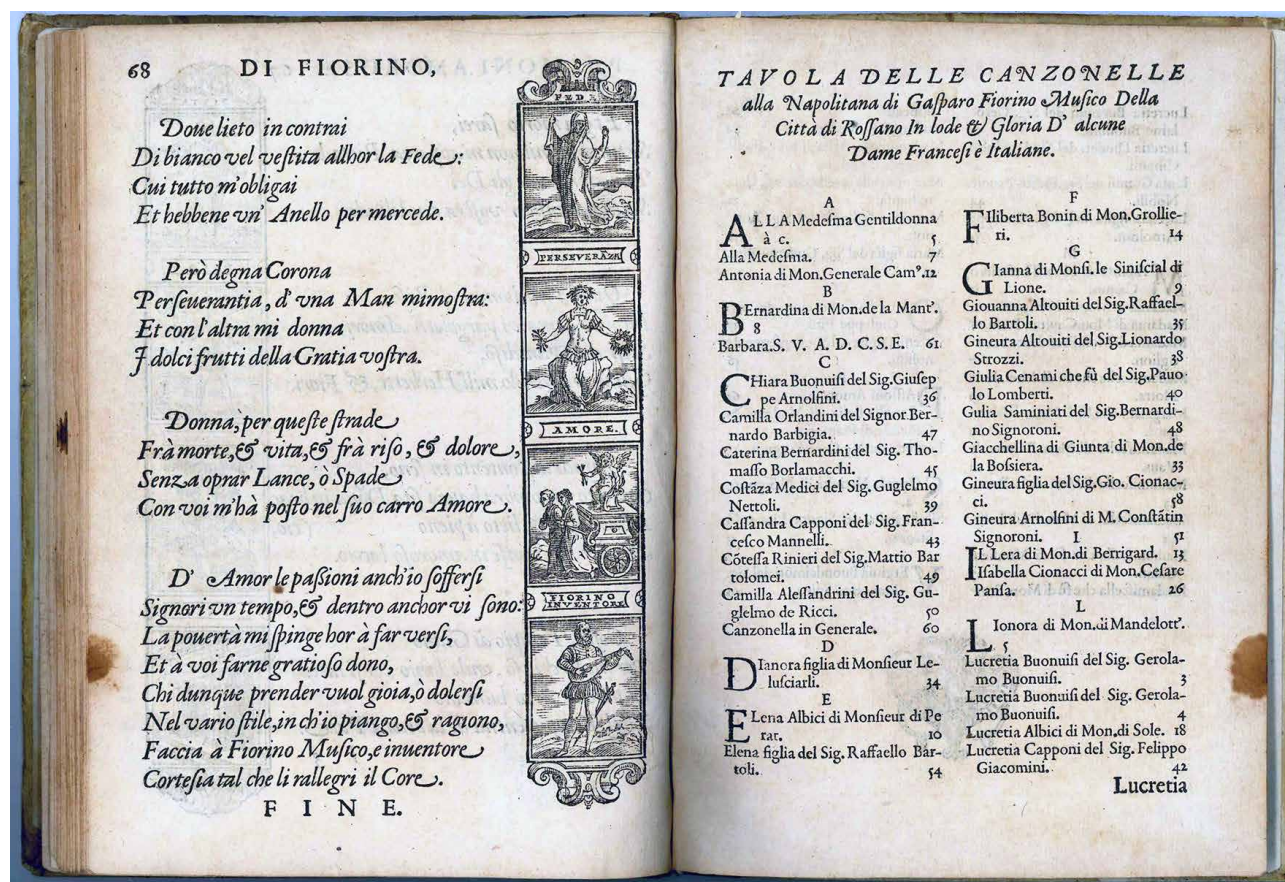 68 DI FIORINO,
Doue lieto in contrai
Di bianco vel vestita allhor la Fede:
Cui tutto m'obligai
Et hebbene vn' Anello per mercede.
Però degna Corona
Perseuerantia, d' vna Man mimostra:
Et con l'altra mi donna
I dolci frutti della Gratia vostra.
Donna, per queste strade
Frà morte, & vita, & frà riso, & dolore,
Senza oprar Lance, ò Spade
Con voi m'hà posto nel suo carro Amore.
D' Amor le passioni anch'io soffersi
Signori vn tempo, & dentro anchor vi sono:
La pouertà mi spinge hor à far versi,
Et à voi farne gratioso dono,
Chi dunque prender vuol gioia, ò dolersi
Nel vario stile, in ch'io piango, & ragiono,
Faccia à Fiorino Musico, e inuentore
Cortesia tal che li rallegri il Core.
FINE.
FEDE
PERSEVERĀZA
AMORE.
FIORINO
INVENTORE
TAVOLA DELLE CANZONELLE
alla Napolitana di Gasparo Fiorino Musico Della
Città di Rossano In lode & Gloria D' alcune
Dame Francesi è Italiane.
A
ALLA Medesma Gentildonna
à c. 5
Alla Medesma. 7
Antonia di Mon.Generale Cam°.12
B
BErnardina di Mon.de la Mant'.
8
Barbara.S. V. A. D. C. S. E. 61
C
CHiara Buonuisi del Sig.Giusep
pe Arnolfini. 36
Camilla Orlandini del Signor Ber-
nardo Barbigia. 47
Caterina Bernardini del Sig. Tho-
masso Borlamacchi. 45
Costāza Medici del Sig. Guglelmo
Nettoli. 39
Cassandra Capponi del Sig. Fran-
cesco Mannelli. 43
Cōtessa Rinieri del Sig.Mattio Bar
tolomei. 49
Camilla Alessandrini del Sig. Gu-
glelmo de Ricci. 50
Canzonella in Generale. 60
D
DIanora figlia di Monsieur Le-
lusciarli. 34
E
ELena Albici di Monsieur di Pe
rat. 10
Elena figlia del Sig. Raffaello Bar-
toli. 54
F
FIliberta Bonin di Mon.Grollie-
ri. 14
G
GIanna di Monsi.le Siniscial di
Lione. 9
Giouanna Altouiti del Sig.Raffael-
lo Bartoli. 35
Gineura Altouiti del Sig.Lionardo
Strozzi. 38
Giulia Cenami che fù del Sig.Pauo
lo Lomberti. 40
Gulia Saminiati del Sig.Bernardi-
no Signoroni. 48
Giacchellina di Giunta di Mon.de
la Bossiera. 33
Gineura figlia del Sig.Gio. Cionac-
ci. 58
Gineura Arnolfini di M. Constātin
Signoroni. 51
I
IL Lera di Mon.di Berrigard. 13
Isabella Cionacci di Mon.Cesare
Pansa. 26
L
LIonora di Mon.di Mandelott'.
5
Lucretia Buonuisi del Sig. Gerola-
mo Buonuisi. 3
Lucretia Buonuisi del Sig. Gerola-
mo Buonuisi. 4
Lucretia Albici di Mon.di Sole. 18
Lucretia Capponi del Sig. Felippo
Giacomini. 42
Lucretia